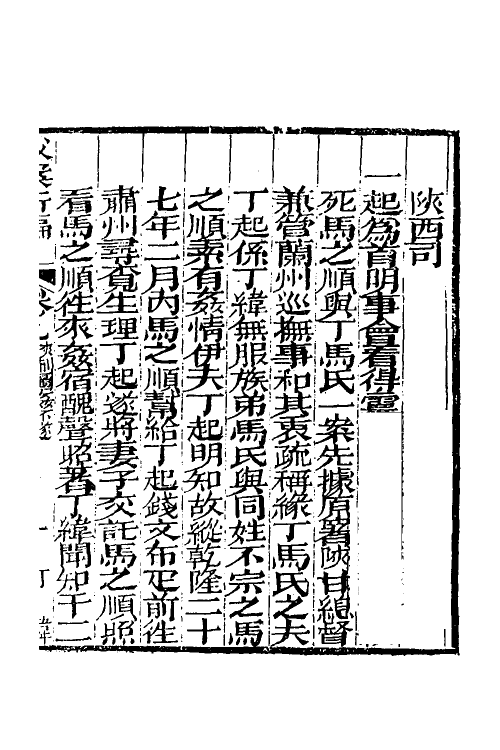 陝西司
一起為首明事會看得霊
死馬之順與丁馬氏一案先據原署陝甘總督
兼管蘭州巡撫事和其衷疏稱緣丁馬氏之夫
丁起係丁緯無服族弟馬氏與同姓不宗之馬
之順素有姦情伊夫丁起明知故縱乾隆二十
七年二月內馬之順幫給丁起錢文布疋前徃
肅州尋覔生理丁起遂將妻子交託馬之順照
看馬之順徃來姦宿醜聲昭著丁緯聞知十二
成案新編